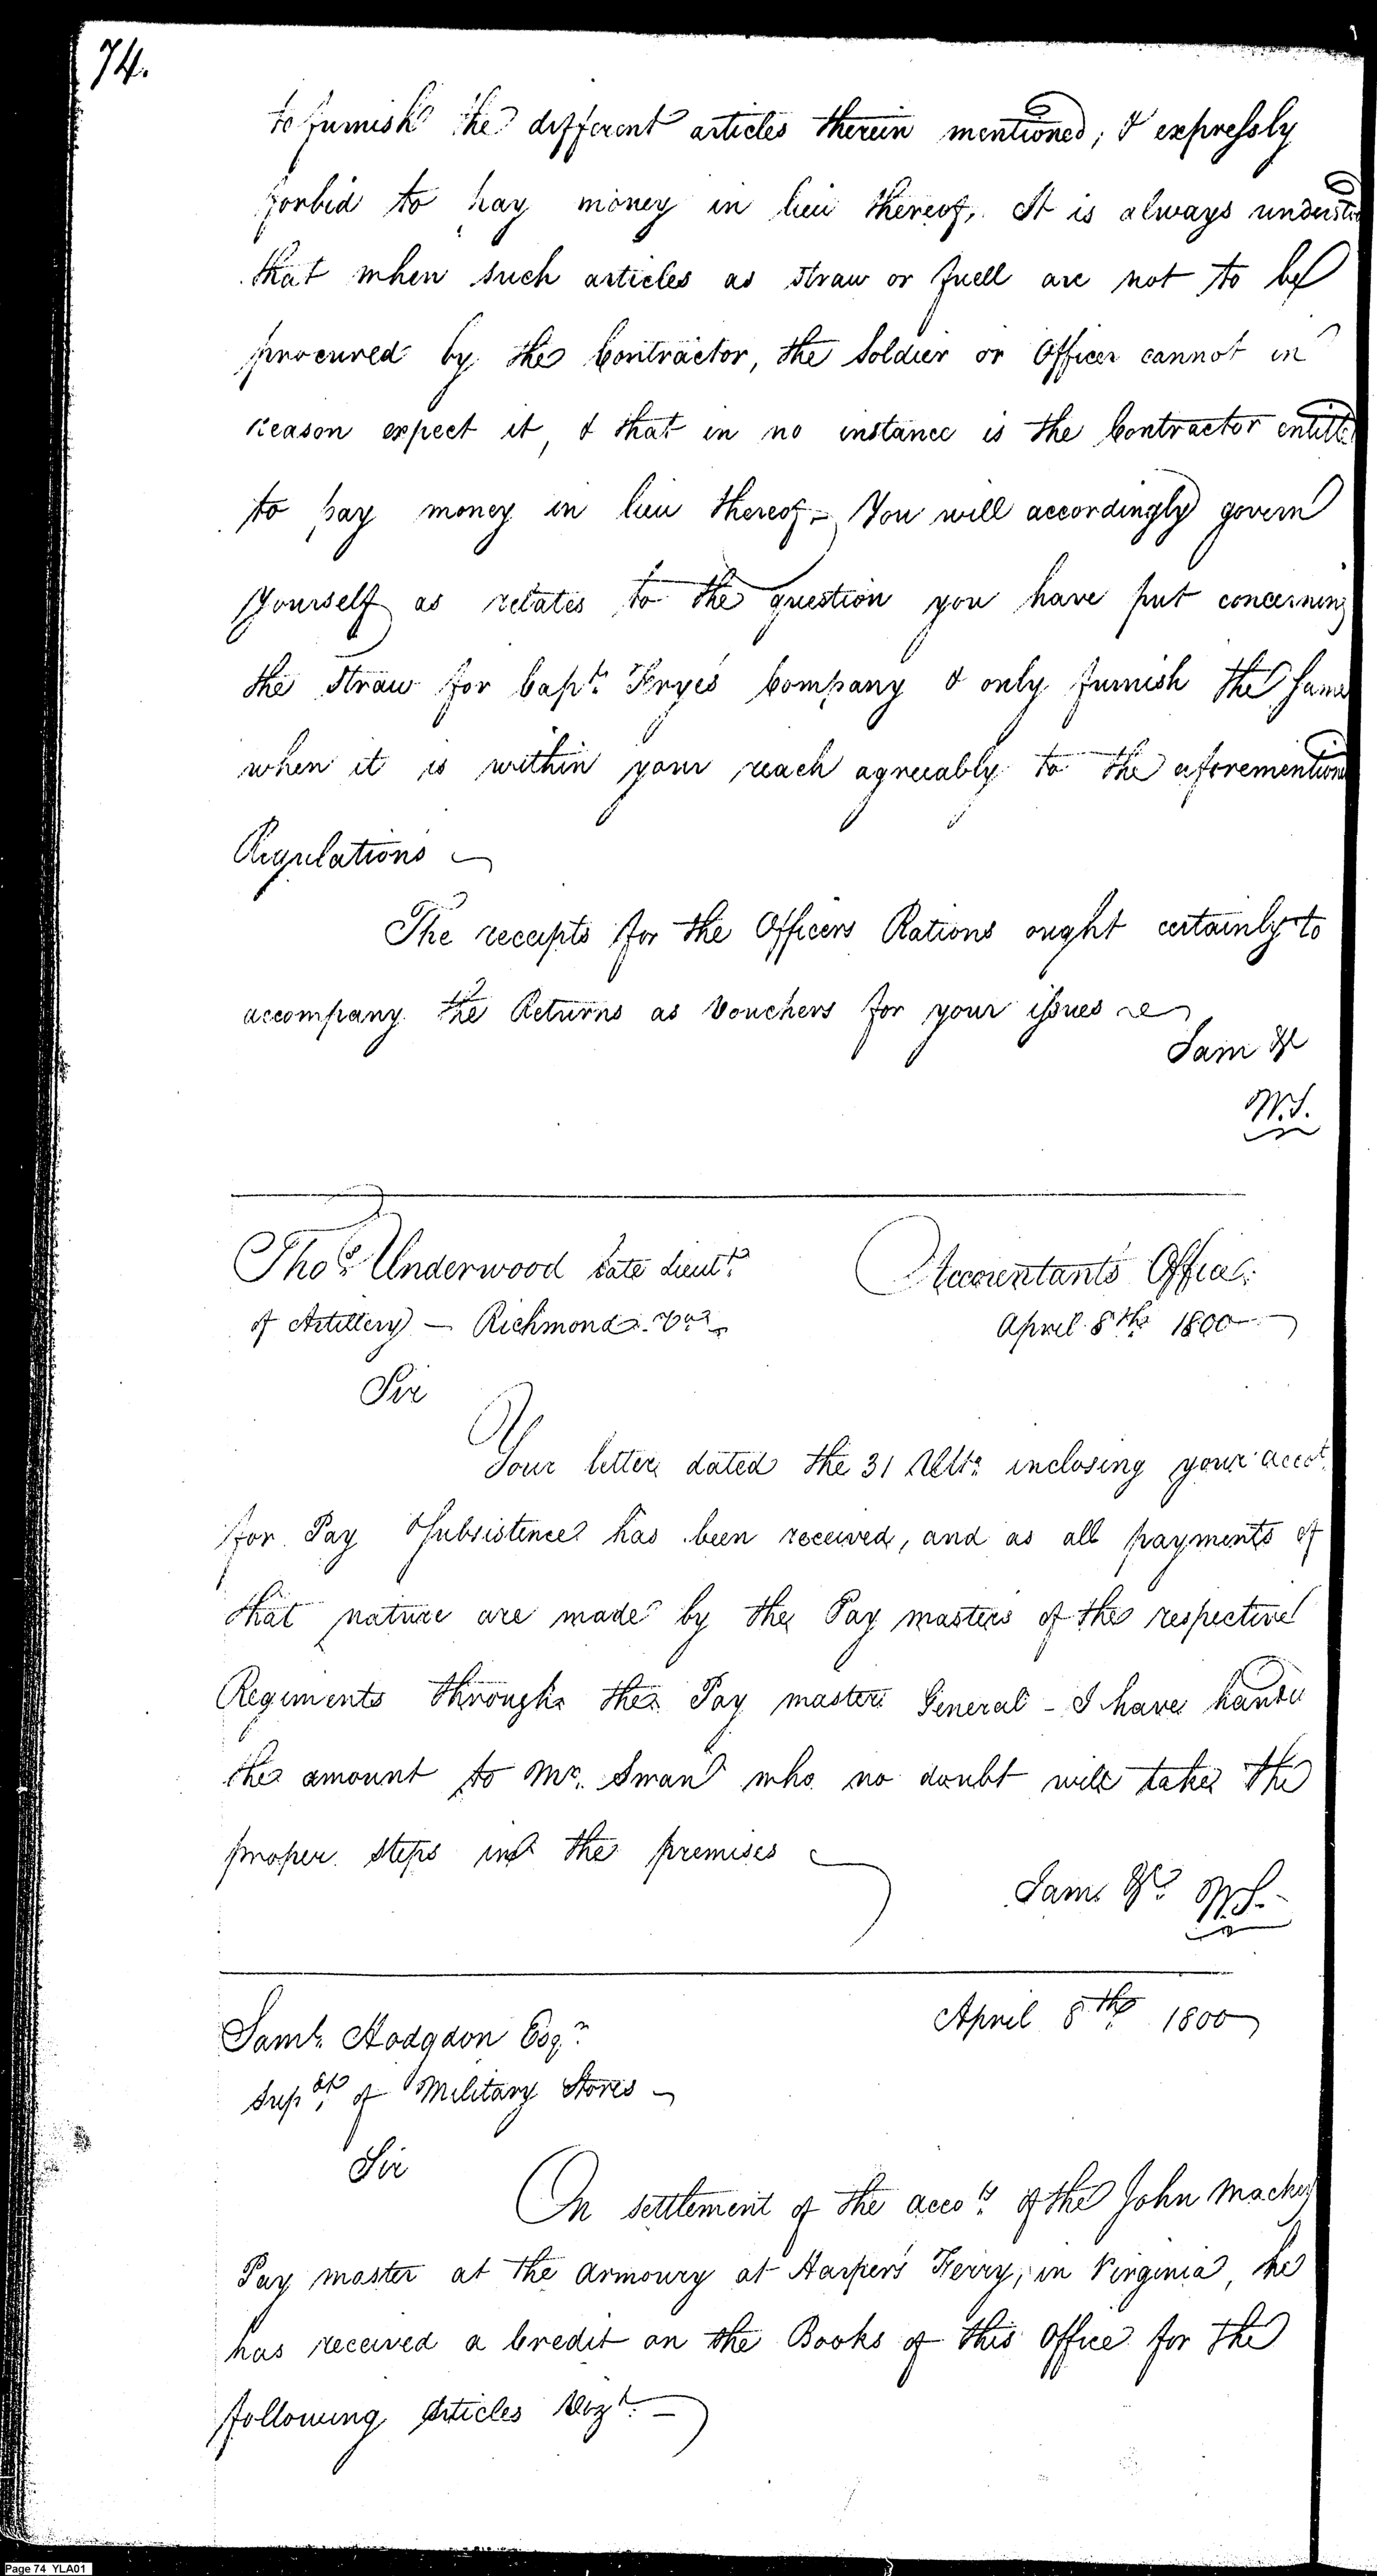 74.
to furnish the different articles therein mentioned, & expressly
forbid to pay money in lieu thereof. It is always understoo
that when such articles as straw or fuell are not to be
procured by the Contractor, the Soldier or Officer cannot in
reason expect it, & that in no instance is the Contractor entitle
to pay money in lieu thereof - You will accordingly govern
yourself as relates to the question you have put concerning
the straw for Capt. Frye's Company & only furnish the same
when it is within your reach agreeably to the aforemention
Regulations
The receipts for the Officers Rations ought certainly to
accompany the Returns as Vouchers for your issues
I am &c
W.S.
Thos. Underwood late Lieut.
of Artillery - Richmond Va.
Accountant's Office.
April 8th 1800
Sir
Your letter dated the 31 Ulto. inclosing your accot.
for Pay & Subsistence has been received, and as all payments of
that nature are made by the Pay masters of the respective
Regiments through the Pay master General - I have hande
the amount to Mr. Swan who no doubt will take the
proper steps in the premises
I am &c W.S.
April 8th 1800
Saml. Hodgdon Esqr.
Supdt. of Military Stores
Sir
On settlement of the accots. of the John Mackey
Pay master at the Armoury at Harper's Ferry, in Virginia, he
has received a Credit on the Books of this Office for the
following Articles Vizt. -
Page 74 YLA01